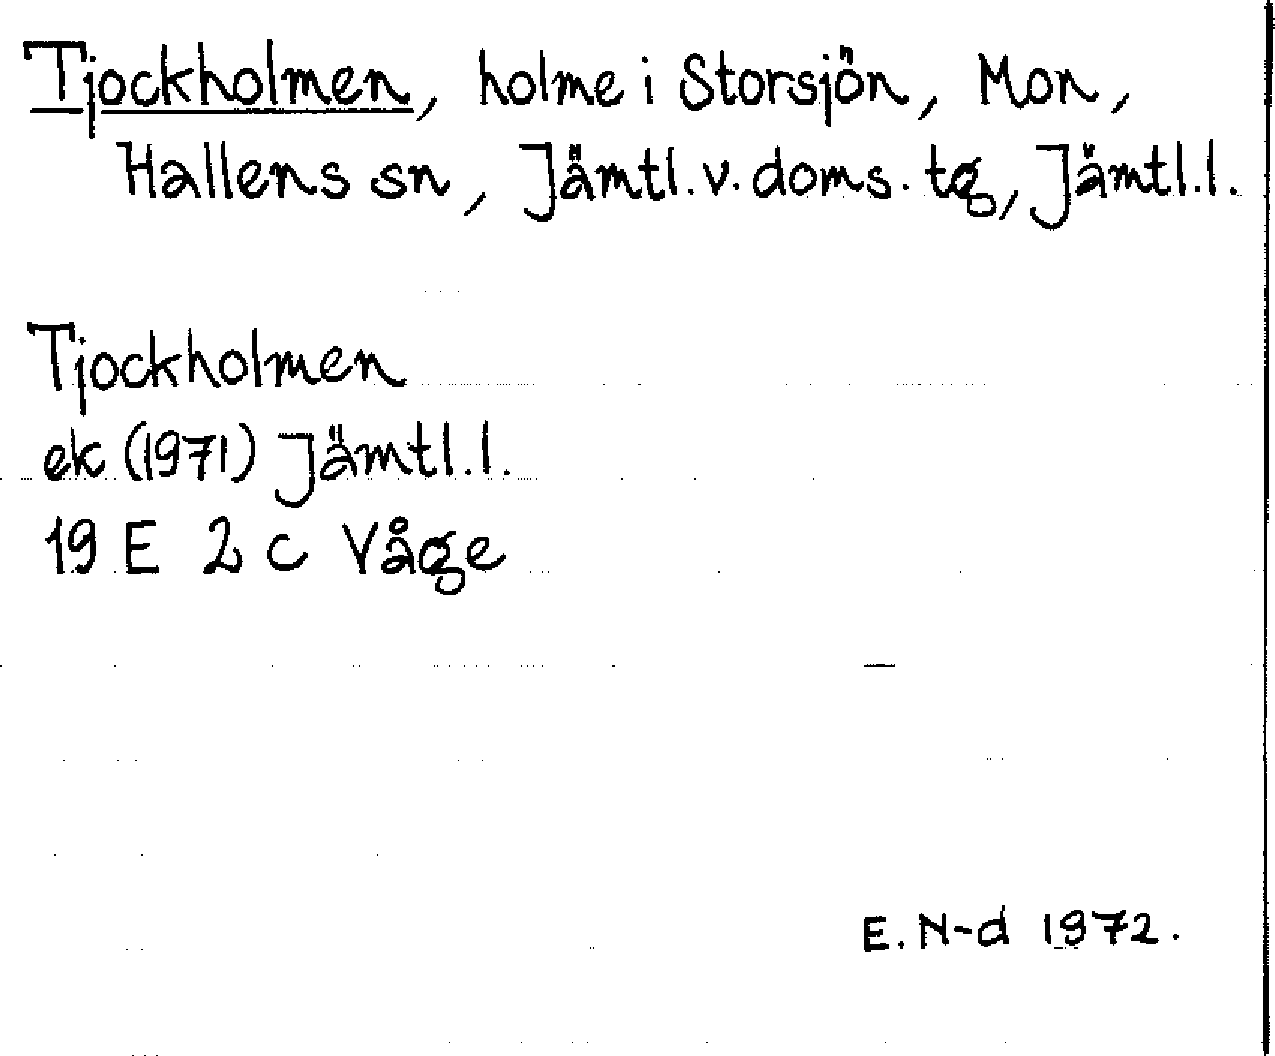 Tjockholmen, holme i Storsjön, Mon,
Hallens sn, Jämtl. v. doms. tg, Jämtl. l.
Tjockholmen
ek (1971) Jämtl. l.
19 E 2 c Våge
E. N-d 1972.